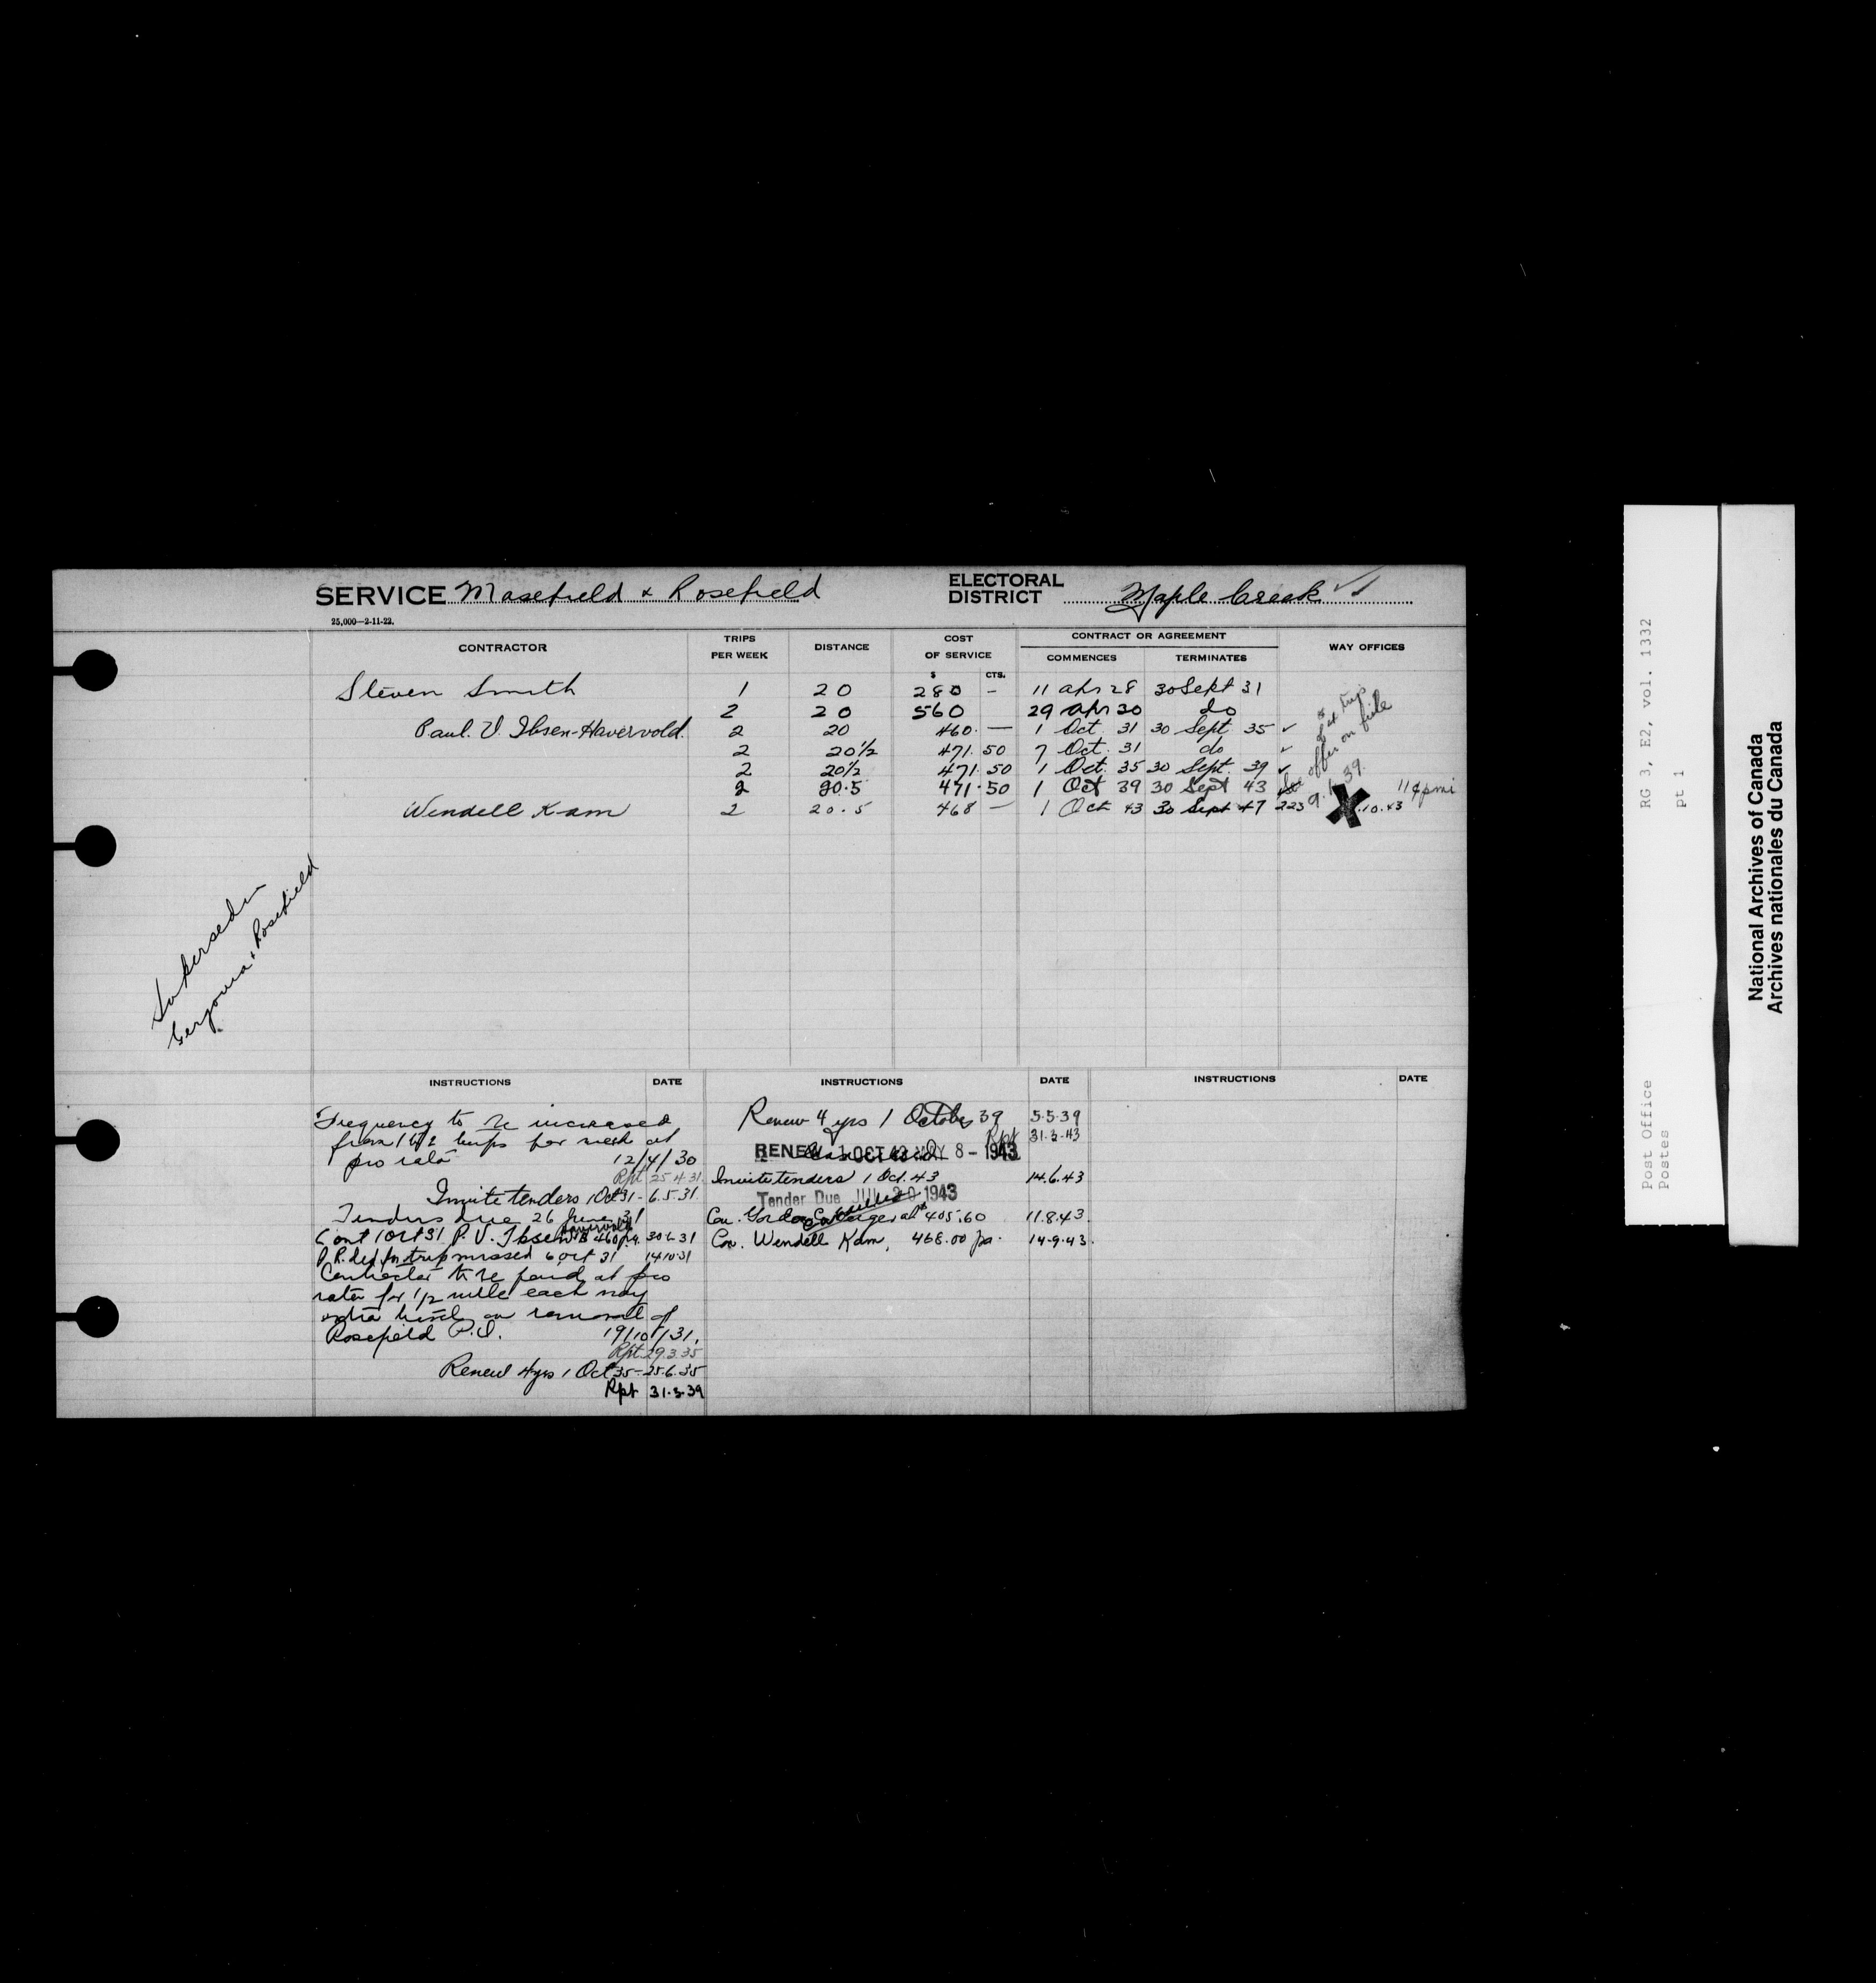 SERVICE Masefield & Rosefield ELECTORAL DISTRICT Maple Creek
25,000—2-11-22.
CONTRACTOR TRIPS PER WEEK DISTANCE COST OF SERVICE CONTRACT OR AGREEMENT WAY OFFICES
$ CTS. COMMENCES TERMINATES
Steven Smith 1 20 280 - 11 Apr 28 30 Sept 31
2 20 560 29 Apr 30 do
Paul. V. Ibsen-Havervold. 2 20 460. — 1 Oct. 31 30 Sept. 35 ✓
2 20½ 471.50 7 Oct. 31 do ✓
2 20½ 471.50 1 Oct. 35 30 Sept. 39 ✓
2 20.5 471.50 1 Oct 39 30 Sept 43
Wendell Kam 2 20.5 468 — 1 Oct 43 30 Sept 47 223 X .10.43
11¢pmi
offer on file
9.1.39.
Superseded
& Rosefield
INSTRUCTIONS DATE
Frequency to be increased
from 1 to 2 trips per week at
pro rata 12/4/30
Rpt 25.4.31.
Invite tenders 1 Oct 31 - 6.5.31.
Tenders due 26 June 31
Cont 1 Oct 31 P. V. Ibsen Havervold 460 p.a. 30.6.31
P.R. ded for trip missed 6 Oct 31 14.10.31
Contractor to be paid at pro
rata for 1/2 mile each way
extra travel on removal of
Rosefield P.O. 19/10/31.
Rpt. 29.3.35
Renew 4 yrs 1 Oct 35 - 25.6.35
Rpt 31.3.39
INSTRUCTIONS DATE
Renew 4 yrs 1 October 39 5.5.39
Rpt 31.3.43
RENEW 1 OCT 43 MAY 8 - 1943
Invite tenders 1 Oct. 43 14.6.43
Tender Due JUL 20 1943
Con. Gordon at $405.60 11.8.43.
Con. Wendell Kam, 468.00 pa. 14.9.43.
INSTRUCTIONS DATE
Post Office RG 3, E2, vol. 1332
Postes pt 1
National Archives of Canada
Archives nationales du Canada